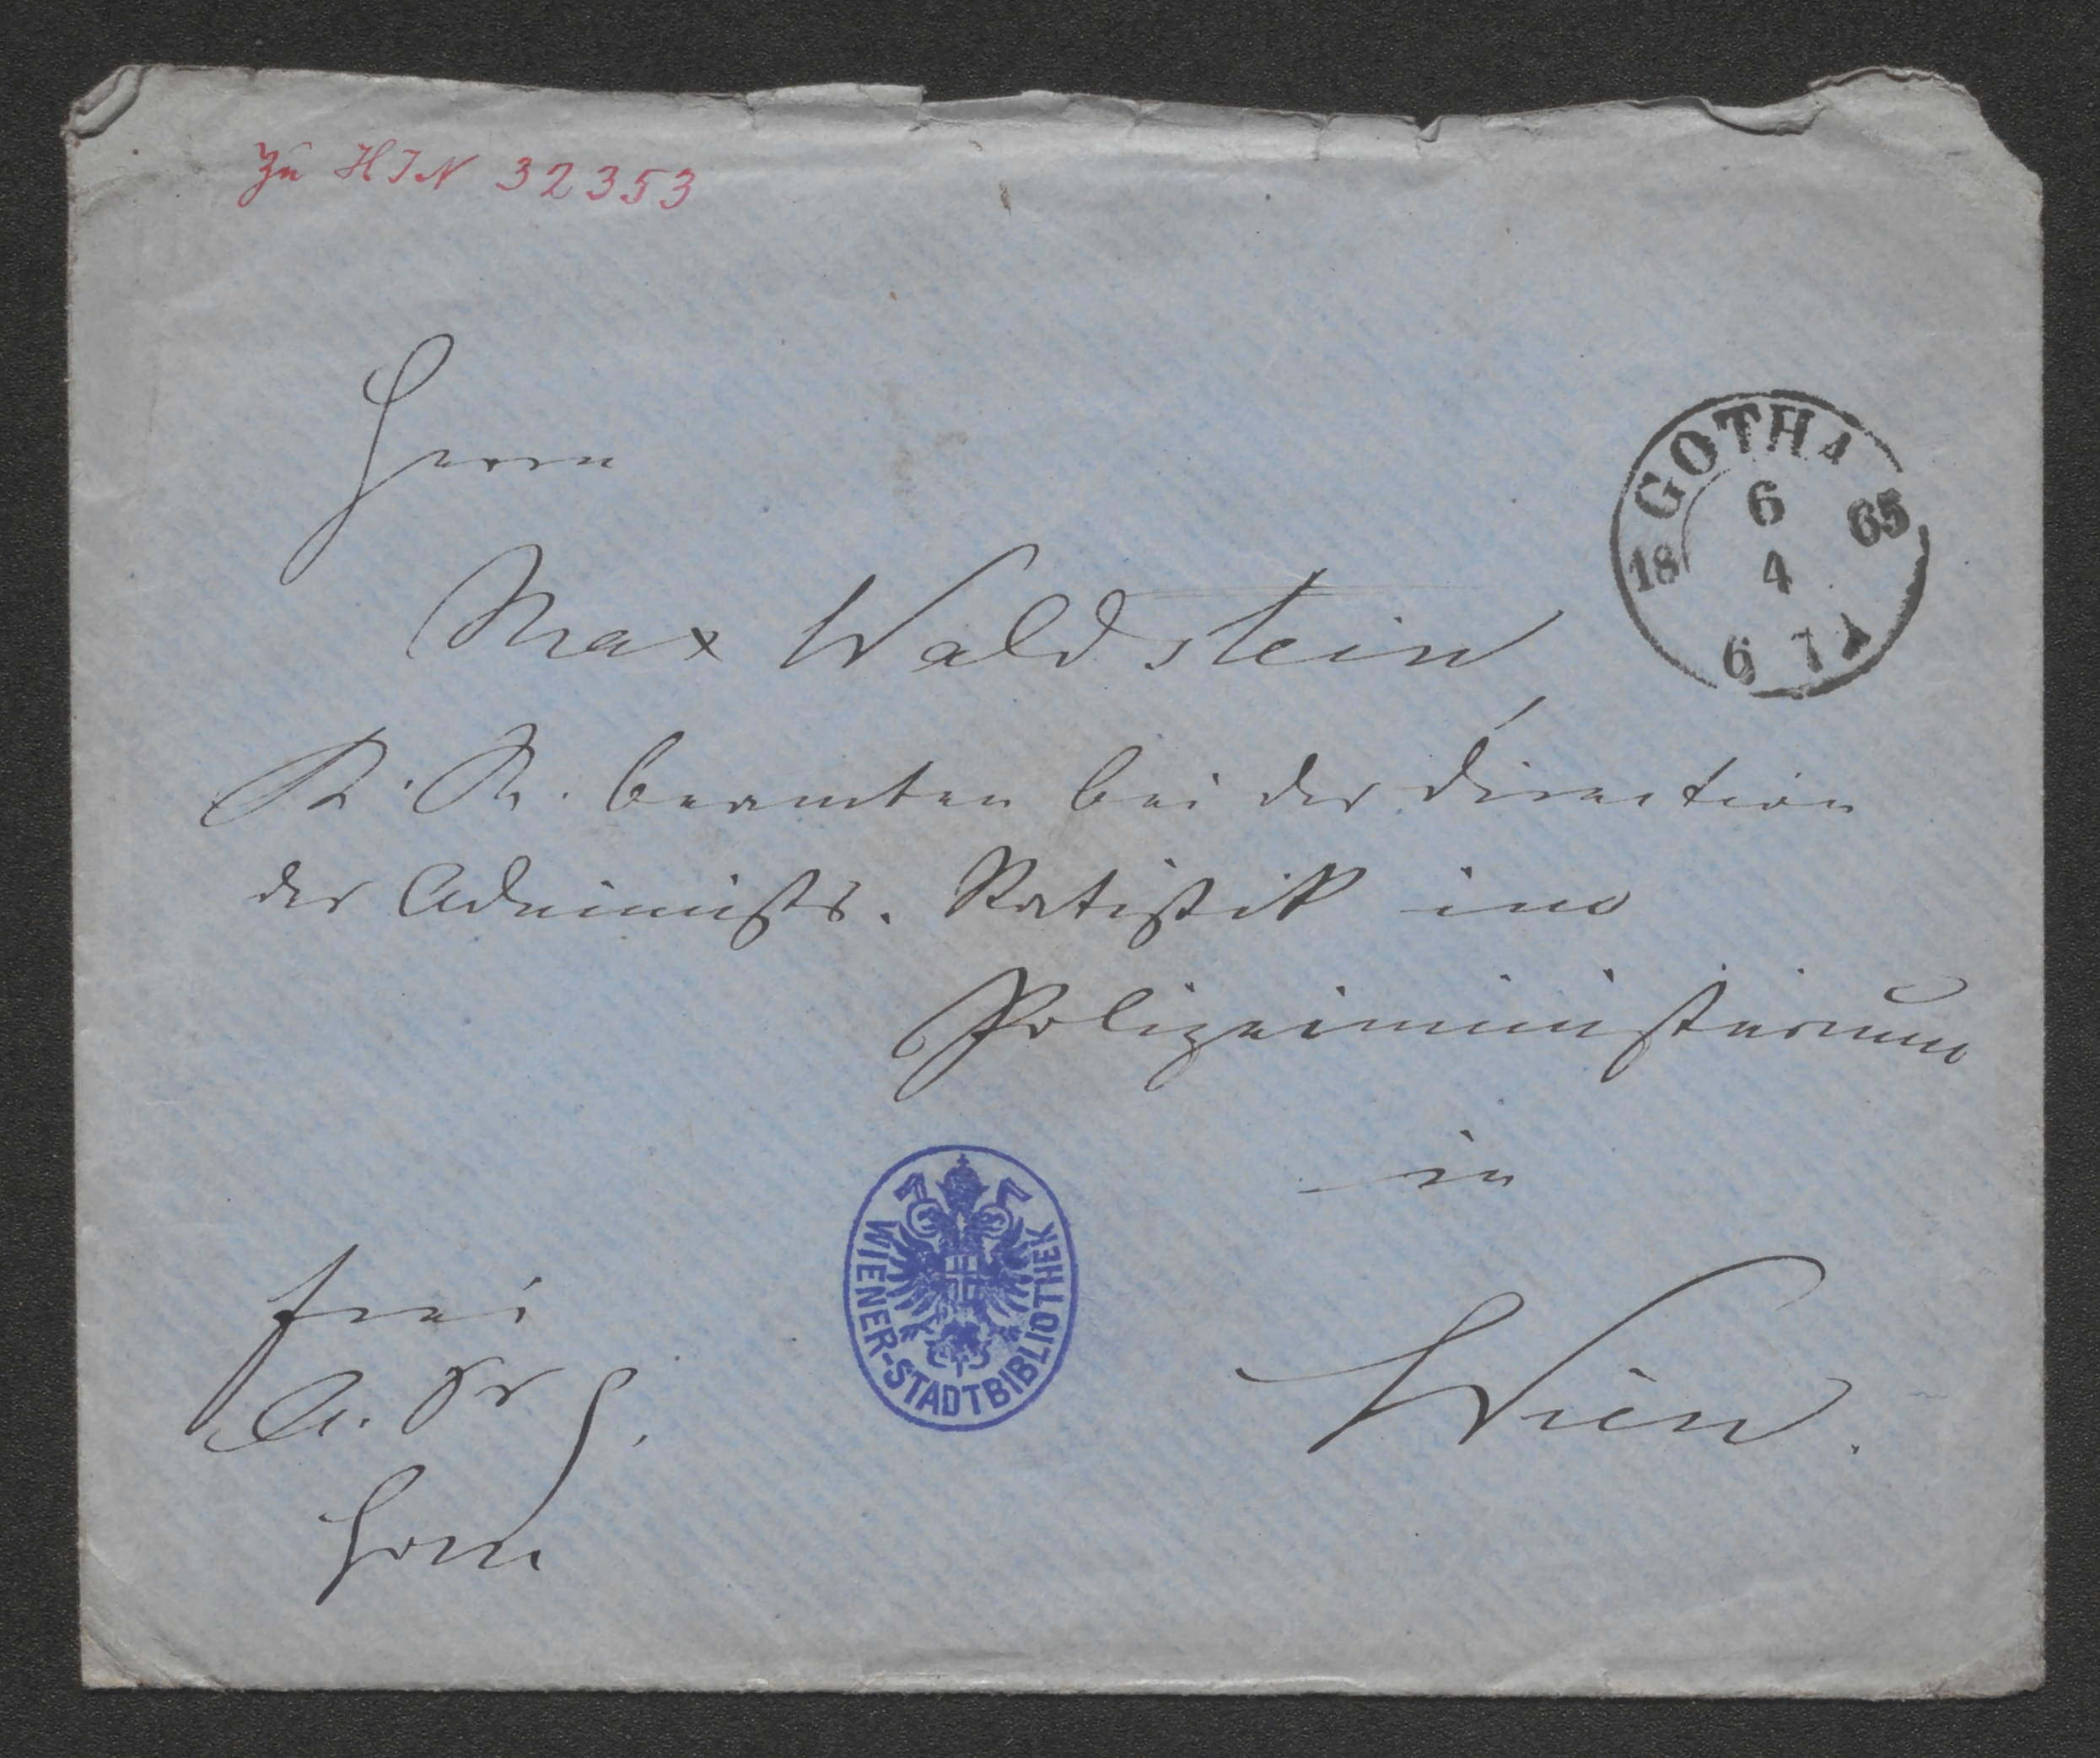 Zu HIN 32353
Herrn
Max Waldstein,
K. K. beamten bei der Direction
der Administr. Statistik im
Polizeiministerium
in
Wien.
frei
GOTHA
6
4
1865
WIENER-STADTBIBLIOTHEK